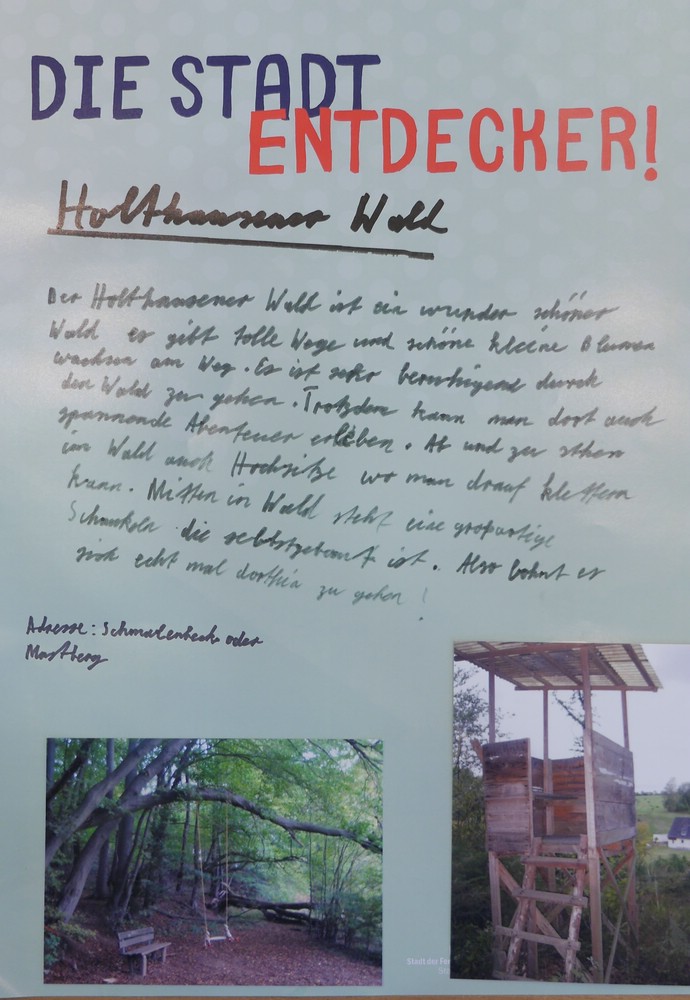 DIE STADT
ENTDECKER!
Holthausener Wald
Der Holthausener Wald ist ein wunder schöner
Wald es gibt tolle Wege und schöne kleine Blumen
wachsen am Weg. Es ist sehr beruhigend durch
den Wald zu gehen. Trotzdem kann man dort auch
spannende Abenteuer erleben. Ab und zu sthen
im Wald auch Hochsitze wo man drauf klettern
kann. Mitten in Wald steht eine großartige
Schaukeln die selbstgebaut ist. Also lohnt es
sich echt mal dorthin zu gehen!
Adresse: Schmalenbeck oder
Mastberg
Stadt der